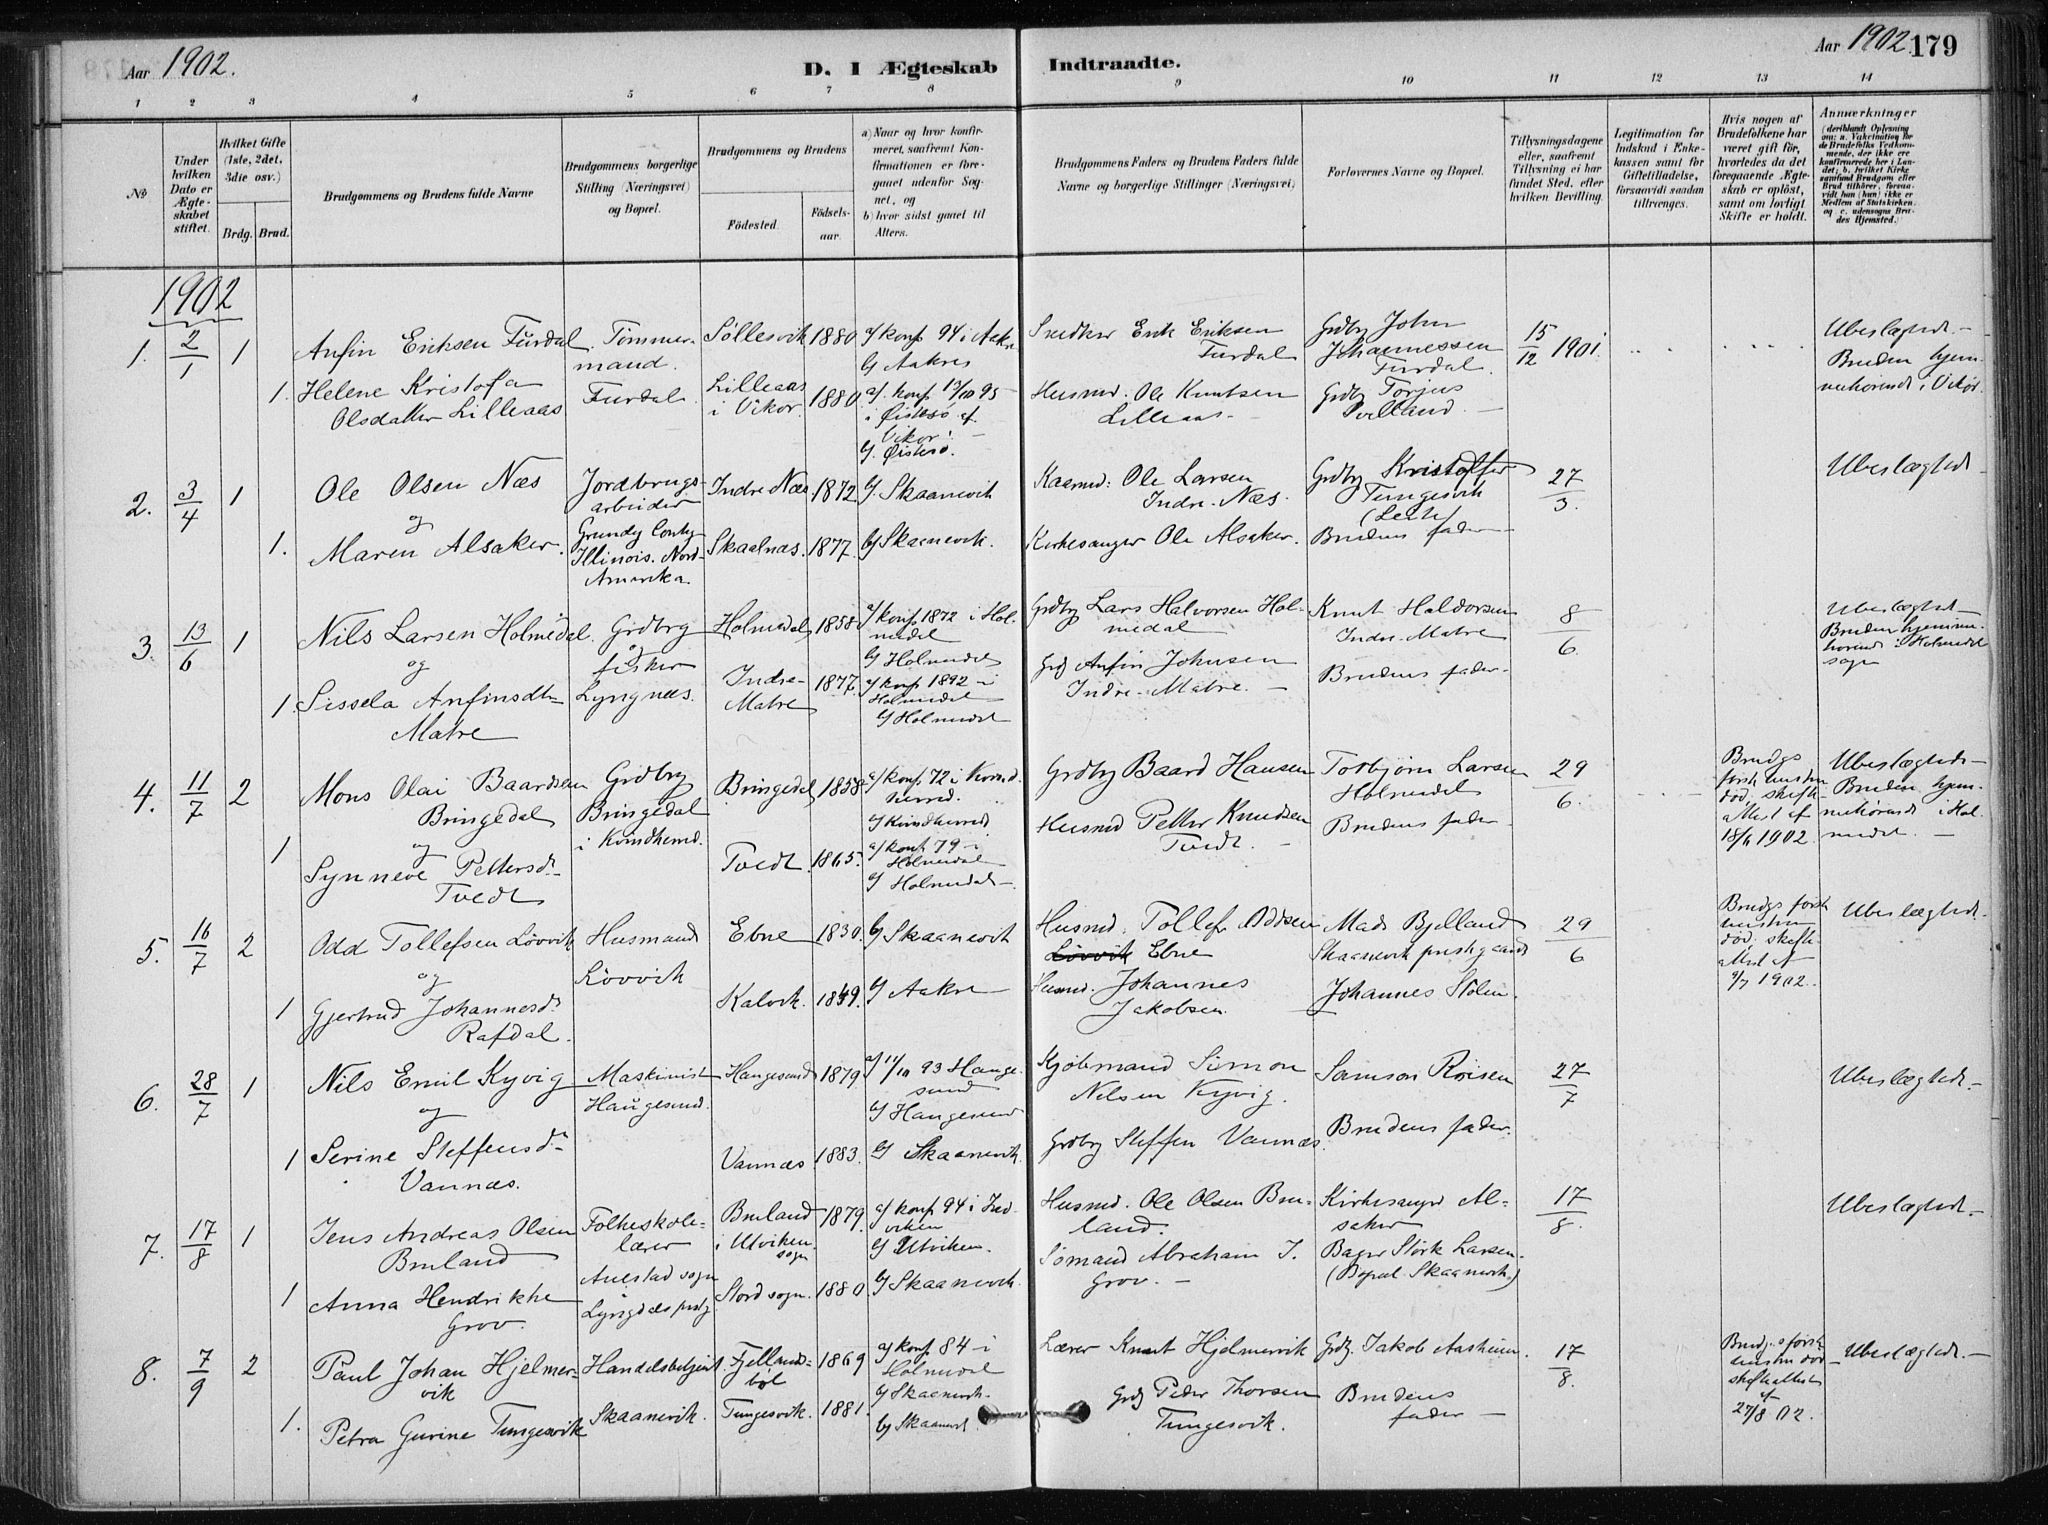 Aar 1902.
D. I Ægteskab Indtraadte.
Aar 1902. 179
1 2 3 4 5 6 7 8 9 10 11 12 13 14
No
Under hvilken Dato er Ægteskabet stiftet.
Hvilket Gifte (1ste, 2det, 3die osv.)
Brdg. Brud.
Brudgommens og Brudens fulde Navne
Brudgommens borgerlige Stilling (Næringsvei) og Bopæl.
Brudgommens og Brudens
Födested.
Födselsaar.
a) Naar og hvor konfirmeret, saafremt Konfirmationen er foregaaet udenfor Sognet, og
b) hvor sidst gaaet til Alters.
Brudgommens Faders og Brudens Faders fulde Navne og borgerlige Stillinger (Næringsvei)
Forlovernes Navne og Bopæl.
Tillysningsdagene eller, saafremt Tillysning ei har fundet Sted, efter hvilken Bevilling.
Legitimation for Indskud i Enkekassen samt for Giftetilladelse, forsaavidt saadan tiltrænges.
Hvis nogen af Brudefolkene har været gift för, hvorledes da det foregaaende Ægteskab er oplöst, samt om lovligt Skifte er holdt.
Anmærkninger
(deriblandt Oplysning om: a. Vakcination for de Brudefolks Vedkommende, der ikke ere konfirmerede her i Landet; b. hvilket Kirkesamfund Brudgom eller Brud tilhörer, forsaavidt han (hun) ikke er Medlem af Statskirken, og c. udensogns Brudes Hjemsted.)
1902
1. 2/1 1 Anfin Eriksen Furdal Tömmermand. Furdal. Söllesvik 1880 a/ konf 94 i Aakre b/ Aakre Erik Eriksen Furdal Grdbr John Johannessen Furdal 15/12 1901. Ubeslægtede Bruden hjemmehörende i Vikör.
1. Helene Kristofa Olsdatter Lilleaas Lilleaas i Vikör. 1880 a/. konf 13/10 95 i Östesö af Vikör. b/. Östesö. Husmd. Ole Knutsen Lilleaas Grdbr Torjus
2. 3/4 1 Ole Olsen Næs Jordbrugsarbeider Indre Næs 1872 b/ Skaanevik Kaarmd: Ole Larsen Indre Næs. Grdbr Kristoffer Tungesvik 27/3. Ubeslægtede
og
1. Maren Alsaker. Grundy Conty Illinois. Nord-Amerika Skaalnæs. 1877. b/ Skaanevik. Kirkesanger Ole Alsaker. Brudens fader
3. 13/6 1 Nils Larsen Holmedal. Grdbrg og fisker Lyngnæs. Holmedal 1858 a/ konf 1872 i Holmedal b/ Holmedal Grdbr Lars Halvorsen Holmedal Knut Haldorsen Indre Matre 8/6. Ubeslægtede Bruden hjemmehörende i Holmedal sogn
og
1. Sissela Anfinsdtr Matre Indre Matre 1877. a/ konf 1892 i Holmedal b/ Holmedal Grdb Anfin Johnsen Indre Matre. Brudens fader
4. 11/7 2 Mons Olai Baardsen Bringedal Grdbr Bringedal i Kvindherred. Bringedal 1858 a/ konf 72 i Kvindherred. b/ Kvindherred Grdbr Baard Hansen Torbjörn Larsen Holmedal 29/6. Brudgs förste hustru död. skifteattest af 18/6 1902. Ubeslægtede Bruden hjemmehörende i Holmedal.
og
1 Synneve Pettersd. Tvedt Tvedt 1865. a/ konf 79 i Holmedal b/ Holmedal Husmd Petter Knudsen Tvedt. Brudens fader
5. 16/7 2 Odd Tollefsen Lövvik Husmand Lövvik Ebne 1830. b/ Skaanevik Husmd. Tollef Oddsen Lövvik Ebne Mads Bjelland Skaanevik prestgaard 29/6 Brudgs förste hustru död. skifteattest af 9/7 1902. Ubeslægtede
og
1 Gjertrud Johannesd. Rafdal. Kalvik. 1849. b/ Aakre Husmd. Johannes Jakobsen. Johannes Stölen.
6. 28/7 1 Nils Emil Kyvig Maskinist Haugesund. Haugesund 1879 a/ 11/10 93 Haugesund b/ Haugesund Kjöbmand Simon Nilsen Kyvig. Samson Röisen 27/7 Ubeslægtede
og
1 Serine Steffensd. Vannæs. Vannæs 1883. b/ Skaanevik. Grdbr Steffen Vannæs. Brudens fader.
7. 17/8 1 Jens Andreas Olsen Bruland Folkeskolelærer Bruland i Utviken sogn 1879. a/ konf 94 i Indviken b/ Utviken. Husmd. Ole Olsen Bruland. Kirkesanger Alsaker 17/8. Ubeslægtede
1 Anna Hendrikke Grov. Auestad sogn Lyngdals prstg Stord sogn. 1880 b/ Skaanevik. Sömand Abraham J. Grov. Bager Störk Larsen. (Bopæl Skaanevik)
8. 7/9 2 Paul Johan Hjelmervik Handelsbetjent. Skaanevik. Fjellandsböl 1869 a/ konf 84 i Holmedal b/ Skaanevik. Lærer Knut Hjelmervik Grdb. Jakob Aasheim. 17/8. Brudg.s förste hustru död skifteattest af 27/8 02. Ubeslægtede.
1. Petra Gurine Tungesvik Tungesvik. 1881. b/ Skaanevik. Grdb Peder Thorsen Tungesvik. Brudens fader